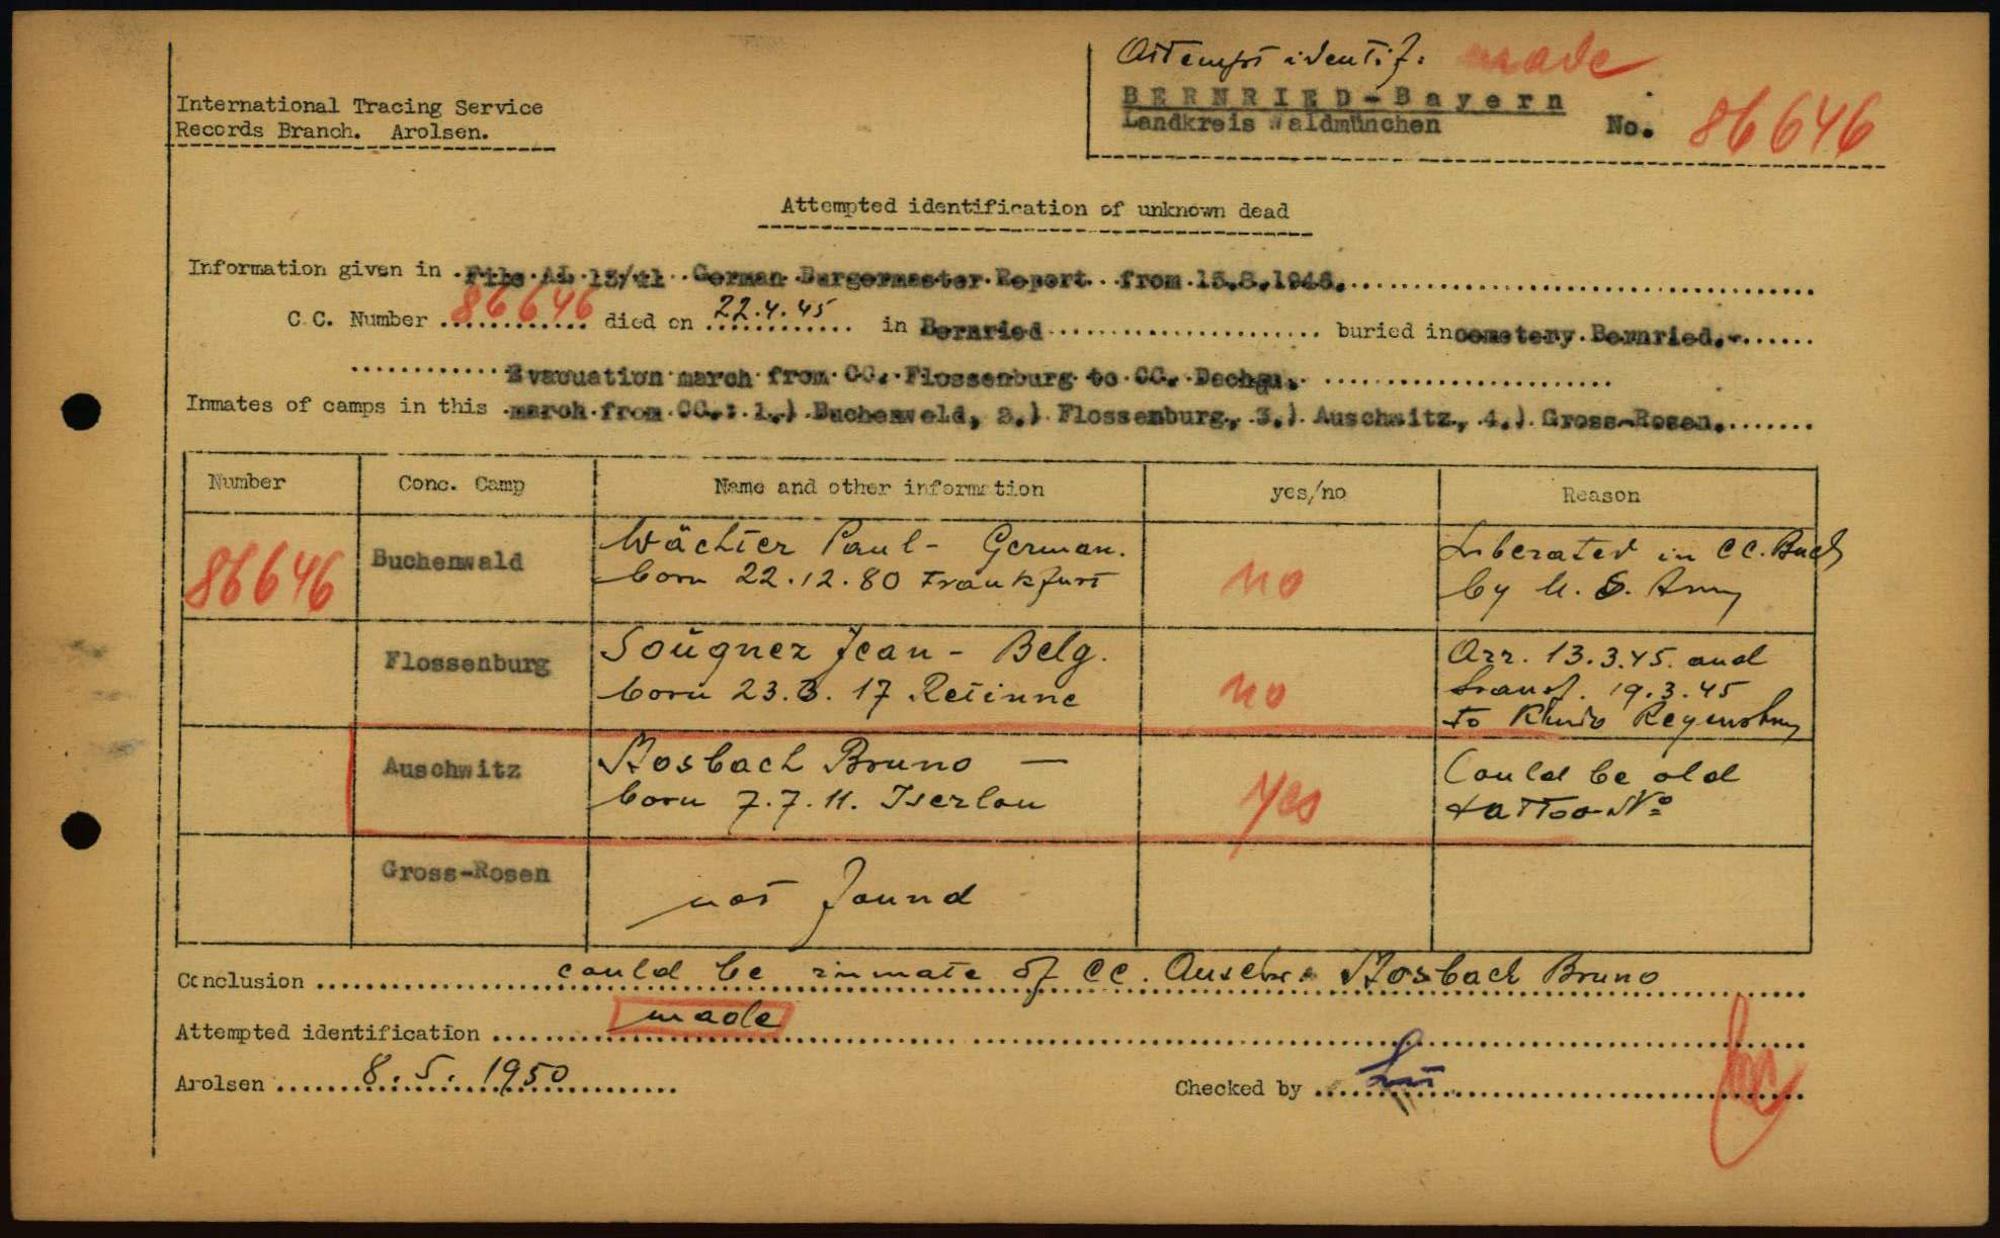 Attempt identif: made
International Tracing Service
Records Branch. Arolsen.
BERNRIED-Bayern
Landkreis Waldmünchen No. 86646
Attempted identification of unknown dead
Information given in File AL 13/41 German Burgermaster Report from 15.8.1946.
C.C. Number 86646 died on 22.4.45 in Bernried buried in cemetery Bernried.-
Evacuation march from CC. Flossenburg to CC. Dachau.
Inmates of camps in this march from CC.: 1.) Buchenweld, 2.) Flossenburg, 3.) Auschwitz, 4.) Gross-Rosen.
Number Conc. Camp Name and other information yes/no Reason
86646 Buchenwald Wächter Paul - German. no Liberated in CC. Buch
born 22.12.80 Frankfurt by U.S. Army
Flossenburg Sougnez Jean - Belg. no Arr. 13.3.45. and
born 23.3.17 Retinne transf. 19.3.45
to Kdo Regensburg
Auschwitz Mosbach Bruno — yes Could be old
born 7.7.11. Iserlon tattoo No
Gross-Rosen not found
Conclusion could be inmate of CC. Auschw. Mosbach Bruno
Attempted identification made
Arolsen 8.5.1950 Checked by